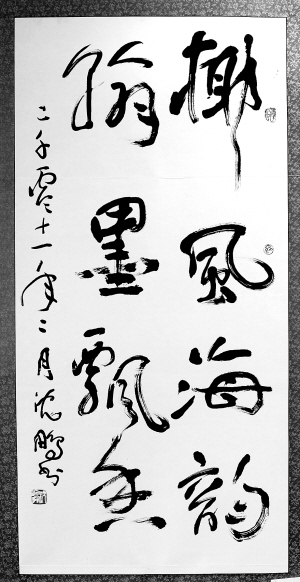 椰風海韵
翰墨飘香
二千零十一年二月沈鹏书